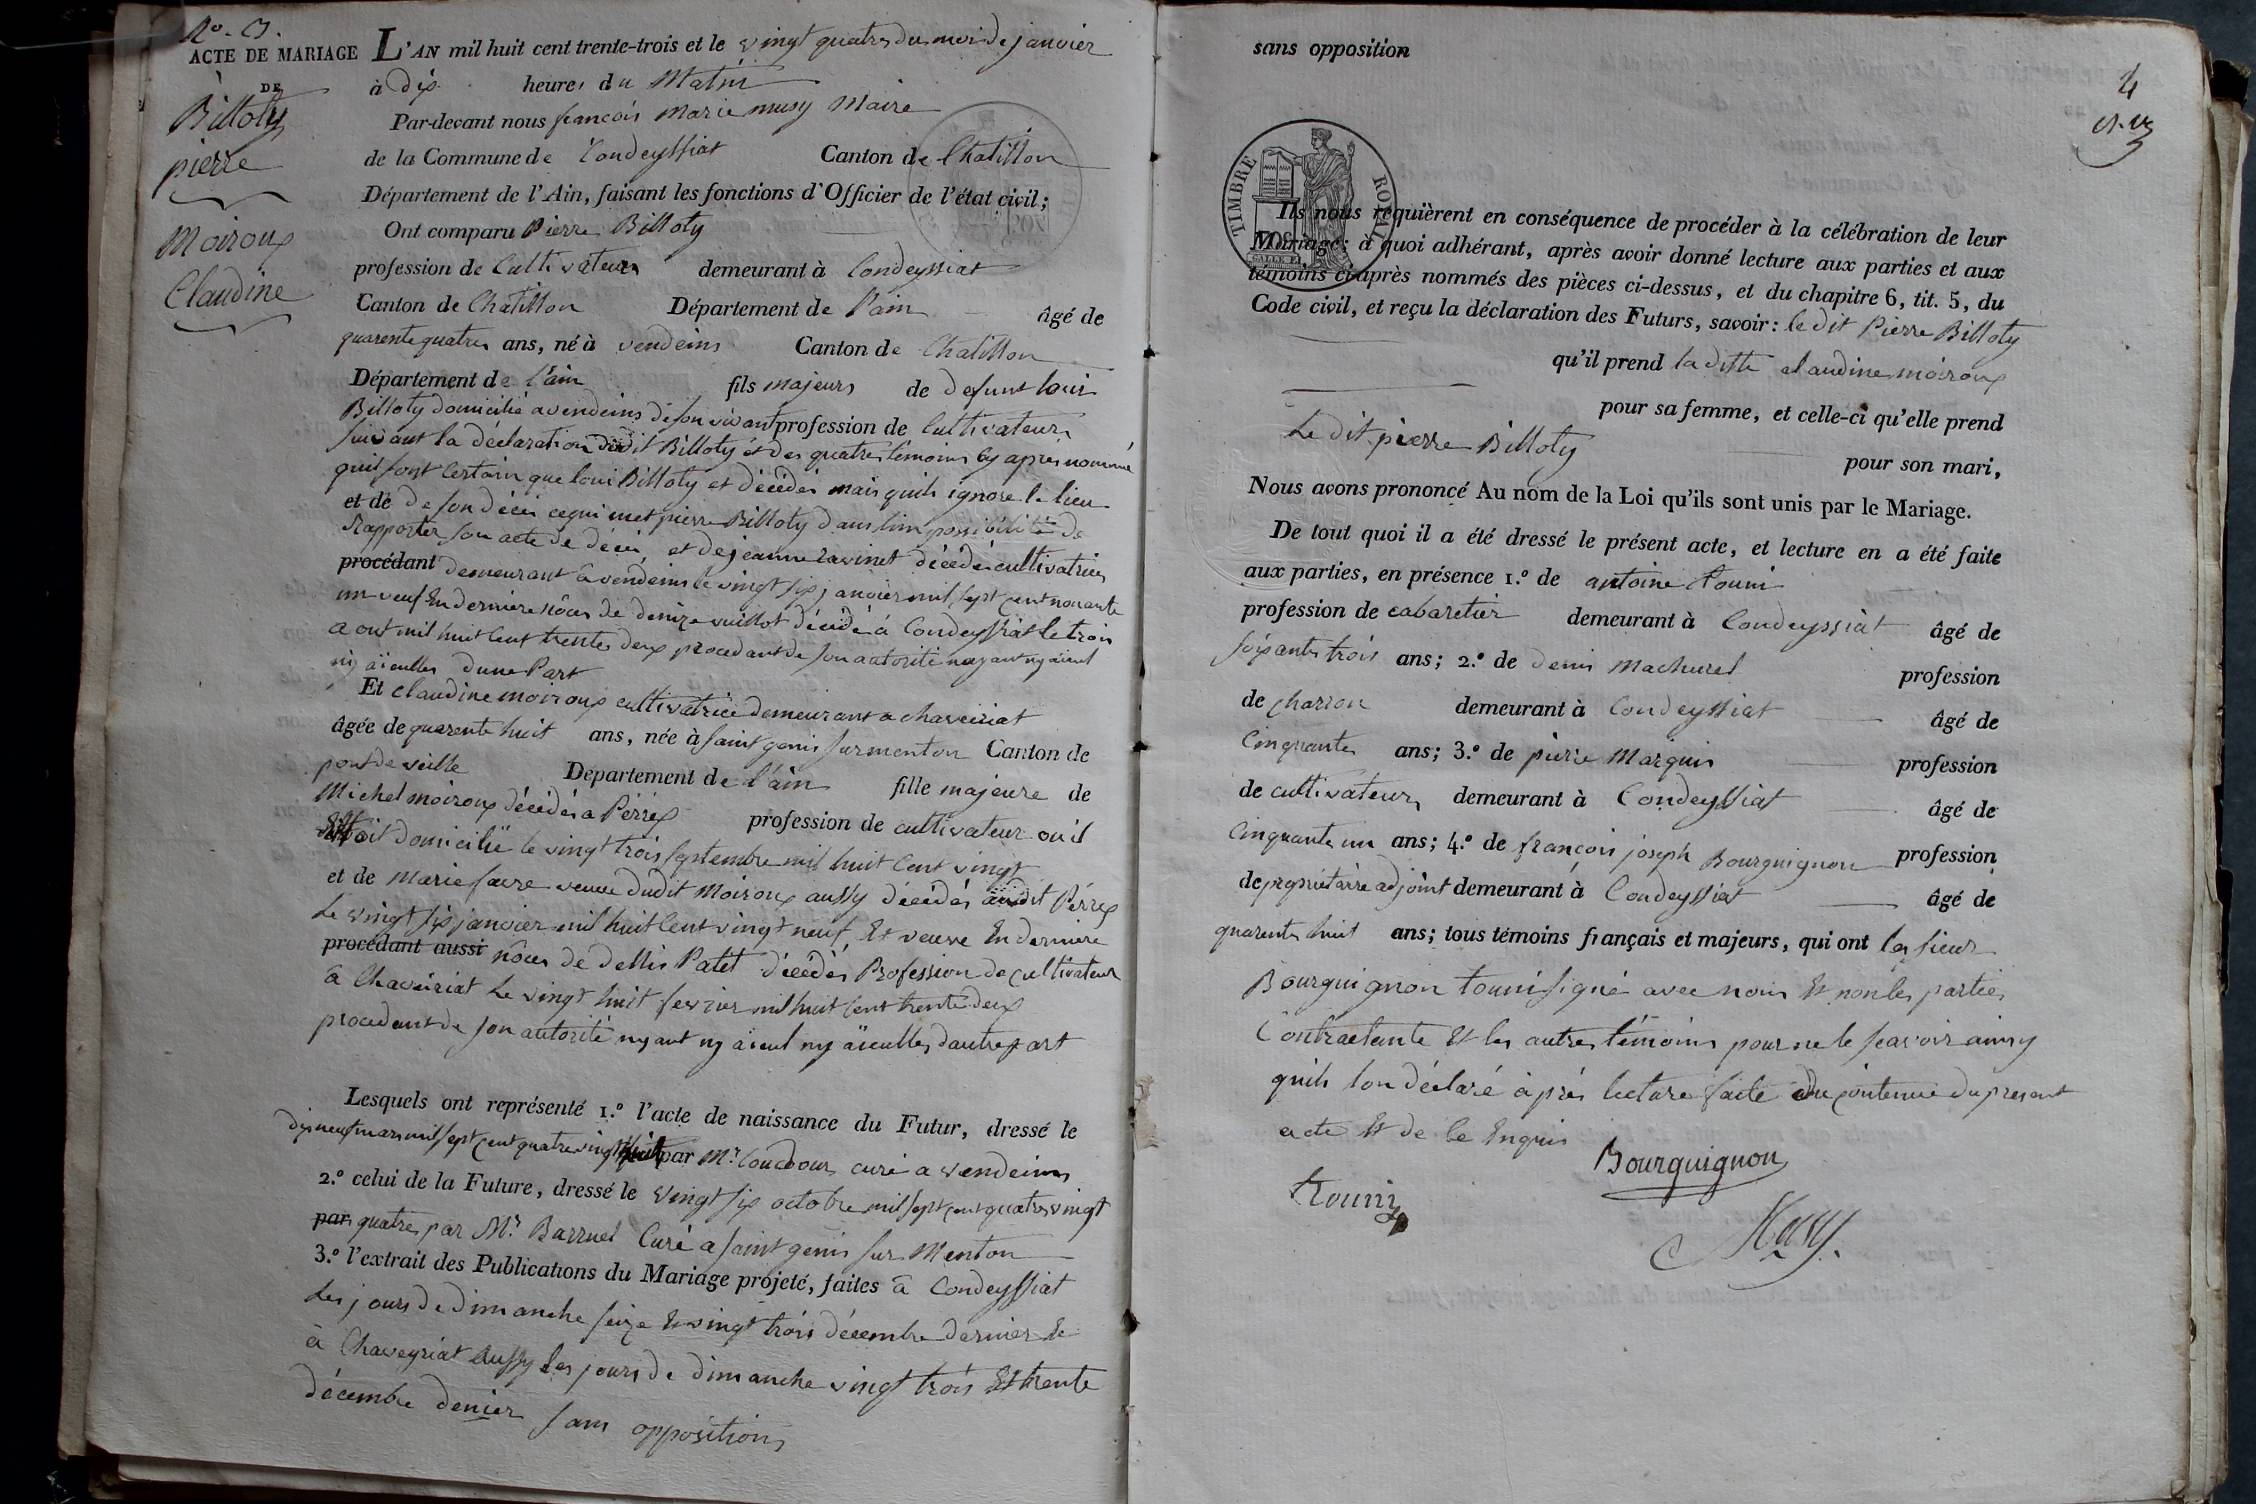 No. 3.
ACTE DE MARIAGE
DE
Billoty
pierre
Moiroux
Claudine
L'AN mil huit cent trente-trois et le vingt quatre du moi de janvier
à dix heures du Matin
Par-devant nous françois Marie musy Maire
de la Commune de Condeyssiat Canton de Chatillon
Département de l'Ain, faisant les fonctions d'Officier de l'état civil;
Ont comparu Pierre Billoty
profession de Cultivateur demeurant à Condeyssiat
Canton de Chatillon Département de l'ain âgé de
quarente quatre ans, né à vendeins Canton de Chatillon
Département de l'ain fils majeurs de defunt louis
Billoty domicilié a vendeins de son vivant profession de Cultivateur
suivant la déclaration dudit Billoty et des quatre témoins cy apres nommé
quil sont certain que loui Billoty et décédé mais quils ignore le lieu
et de de son décès cequi met pierre Billoty dans limpossibilité de
rapporter son acte de décès, et de jeanne ravinet décédé cultivatrice
procédant demeurant à vendeins le vingt six janvier mil sept cent nonante
un veuf En dernière nôces de denize vuillot décédé à Condeyssiat le trois
aout mil huit Cent trente deux procedant de son autorité nayant ny aieul
ny aïeulles dune Part
Et claudine moiroux cultivatrice demeurant a chaveiriat
âgée de quarente huit ans, née à saint genis sur menton Canton de
pont de veille Département de l'ain fille majeure de
Michel moiroux décédés a Pérrex profession de cultivateur ou il
Ettoit domicilié le vingt trois septembre mil huit Cent vingt
et de marie favre veuve dudit Moiroux aussy décédés audit Pérrex
Le vingt six janvier mil huit Cent vingt neuf Et veuve En dernière
procédant aussi nôces de dellis Patet décédés Profession de cultivateur
à Chaveiriat Le vingt huit fevrier mil huit Cent trente deux
procedant de son autorité nyant ny aieul ny aïeulles dautre part
Lesquels ont représenté 1.º l'acte de naissance du Futur, dressé le
dix neuf mars mil sept cent quatre vingt huit par Mr. Coudour curé a vendeins
2.º celui de la Future, dressé le vingt six octobre mil sept cent quatre vingt
par quatre par Mr Barruel Curé a saint genis sur Menton
3.º l'extrait des Publications du Mariage projeté, faites à Condeyssiat
Les jours de dimanche seize Et vingt trois décembre dernier Et
à Chaveyriat Aussy les jours de dimanche vingt trois Et trente
décembre denier sans oppositions
sans opposition
4
TIMBRE ROYAL
Ils nous requièrent en conséquence de procéder à la célébration de leur
Mariage; à quoi adhérant, après avoir donné lecture aux parties et aux
témoins ci-après nommés des pièces ci-dessus, et du chapitre 6, tit. 5, du
Code civil, et reçu la déclaration des Futurs, savoir: le dit Pierre Billoty
qu'il prend la ditte claudine moiroux
pour sa femme, et celle-ci qu'elle prend
Le dit pierre Billoty
pour son mari,
Nous avons prononcé Au nom de la Loi qu'ils sont unis par le Mariage.
De tout quoi il a été dressé le présent acte, et lecture en a été faite
aux parties, en présence 1.º de antoine touni
profession de cabaretier demeurant à Condeyssiàt âgé de
soixante trois ans; 2.º de denis Machurel profession
de charron demeurant à Condeyssiat âgé de
Cinquante ans; 3.º de pierre Marquis profession
de cultivateur demeurant à Condeyssiat âgé de
Cinquante un ans; 4.º de françois joseph Bourguignon profession
de propriétaire adjoint demeurant à Condeyssiat âgé de
quarente huit ans; tous témoins français et majeurs, qui ont les sieur
Bourguignon touni signé avec nous Et non les parties
Contractante Et les autres témoins pour ne le scavoir ainsy
quils lon déclaré àprés lecture faite du contenue du present
acte Et de ce Enquis
Bourguignon
touni
Musy